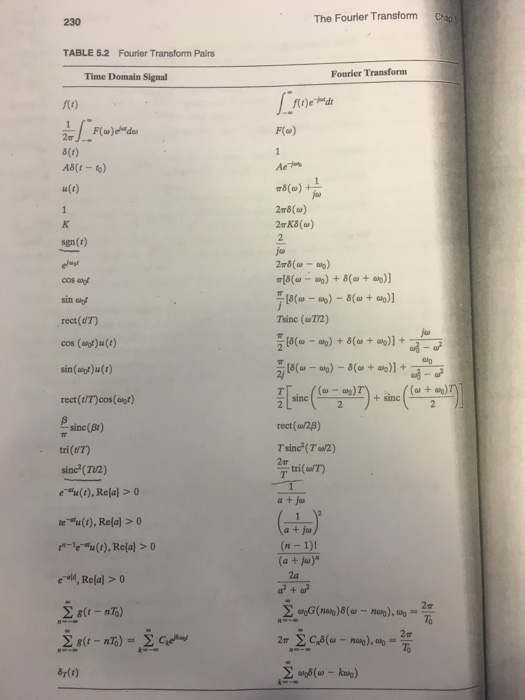 230 The Fourier Transform Chap
TABLE 5.2 Fourier Transform Pairs
Time Domain Signal Fourier Transform
f(t) ∫_{-∞}^{∞} f(t)e^{-jωt}dt
1/2π ∫_{-∞}^{∞} F(ω)e^{jωt}dω F(ω)
δ(t) 1
Aδ(t − t₀) Ae^{-jωt₀}
u(t) πδ(ω) + 1/jω
1 2πδ(ω)
K 2πKδ(ω)
sgn(t) 2/jω
e^{jω₀t} 2πδ(ω − ω₀)
cos ω₀t π[δ(ω − ω₀) + δ(ω + ω₀)]
sin ω₀t π/j [δ(ω − ω₀) − δ(ω + ω₀)]
rect(t/T) Tsinc (ωT/2)
cos (ω₀t)u(t) π/2 [δ(ω − ω₀) + δ(ω + ω₀)] + jω/(ω₀² − ω²)
sin(ω₀t)u(t) π/2j [δ(ω − ω₀) − δ(ω + ω₀)] + ω₀/(ω₀² − ω²)
rect(t/T)cos(ω₀t) T/2 [sinc((ω − ω₀)T/2) + sinc((ω + ω₀)T/2)]
β/π sinc(βt) rect(ω/2β)
tri(t/T) T sinc²(Tω/2)
sinc²(Tt/2) 2π/T tri(ω/T)
e^{-at}u(t), Re{a} > 0 1/(a + jω)
te^{-at}u(t), Re{a} > 0 (1/(a + jω))²
t^{n-1}e^{-at}u(t), Re{a} > 0 (n − 1)!/(a + jω)ⁿ
e^{-a|t|}, Re{a} > 0 2a/(a² + ω²)
∑_{n=-∞}^{∞} g(t − nT₀) ∑_{n=-∞}^{∞} ω₀G(nω₀)δ(ω − nω₀), ω₀ = 2π/T₀
∑_{n=-∞}^{∞} g(t − nT₀) = ∑_{k=-∞}^{∞} C_k e^{jkω₀t} 2π ∑_{n=-∞}^{∞} C_nδ(ω − nω₀), ω₀ = 2π/T₀
δ_T(t) ∑_{k=-∞}^{∞} ω₀δ(ω − kω₀)